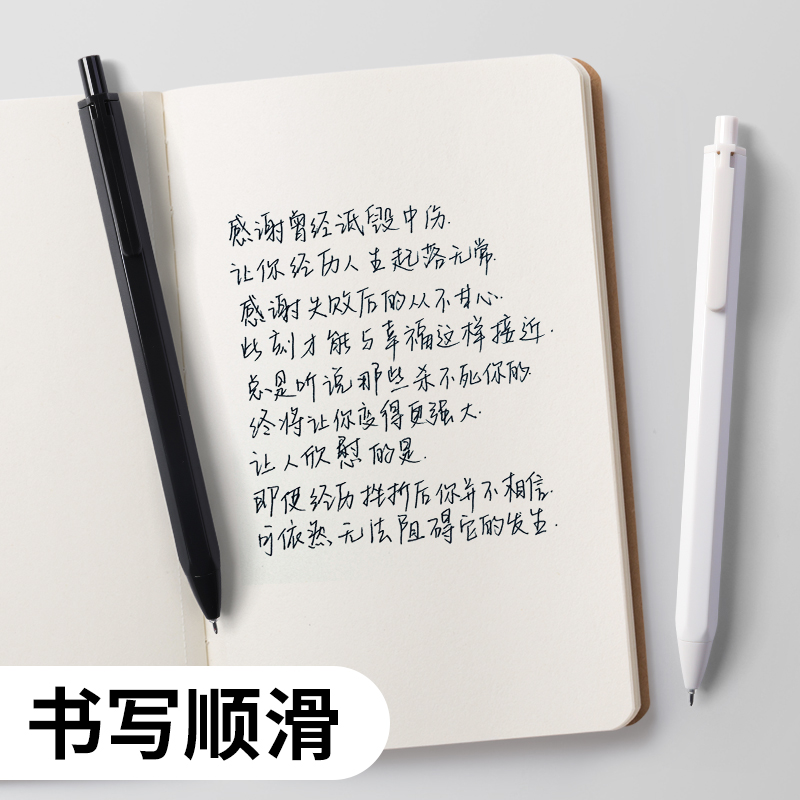 感谢曾经诋毁中伤.
让你经历人生起落无常.
感谢失败后的从不甘心.
此刻才能与幸福这样接近.
总是听说那些杀不死你的
终将让你变得更强大.
让人欣慰的是.
即使经历挫折后你并不相信.
可依然无法阻碍它的发生.
书写顺滑